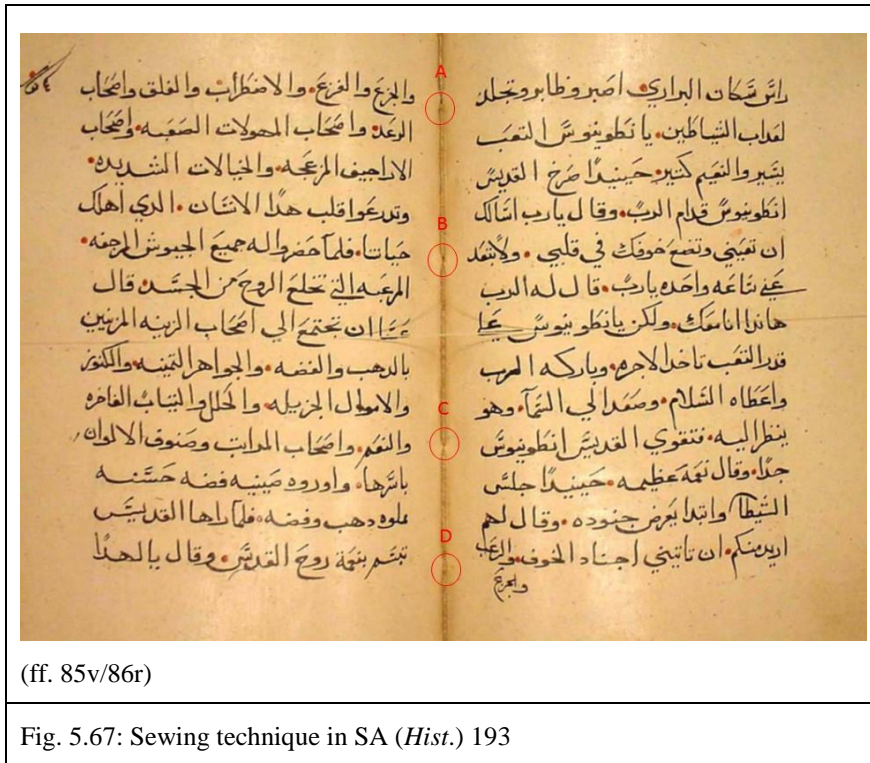 A
B
C
D
راس سكان البراري. اصبر وظابر وتجلد
لعداب الشياطين. يا نطونيوس التعب
يسير والنعيم كتير. حينيدًا صرخ القديس
انطونيوس قدام الرب. وقال يارب اسالك
ان تعيني وتضع خوفك في قلبي. ولا تبتعد
عني ساعه واحده يارب. قال له الرب
هاندا انا معك. ولكن يا نطونيوس علي
قدر التعب تاخد الاجره. وباركه الرب
واعطاه السلام. وصعد الي السمآ. وهو
ينظر اليه. فتقوي القديس انطونيوس
جدًا. وقال نعمة عظيمه. حينيدًا جلس
الشيطان وابتدا يعرض جنوده. وقال لهم
اريد منكم. ان تاتيني اجناد الخوف. والرعب
والجزع
والجزع والفزع. والاضطراب والقلق واصحاب
الرعد. واصحاب المهولات الصعبه. واصحاب
الاراجيف المزعجه. والخيالات الشديده.
وتدرعوا قلب هدا الانسان. الدي اهلك
حياتنا. فلما حضروا له جميع الجيوش المرجفه.
المرعبه التي تخلع الروح من الجسد. قال
عسا ان تجتمع الي اصحاب الزينه المزينين
بالدهب والفضه. والجواهر التمينه. والكنوز
والاموال الجزيله. والحلل والتياب الفاخره
والنعم. واصحاب المراتب وصنوف الالوان
باسرها. واوروه صينيه فضه حسنه
ملوه دهب وفضه. فلما راها القديس
تبسم بنعمة روح القدس. وقال يا لهدا
(ff. 85v/86r)
Fig. 5.67: Sewing technique in SA (Hist.) 193